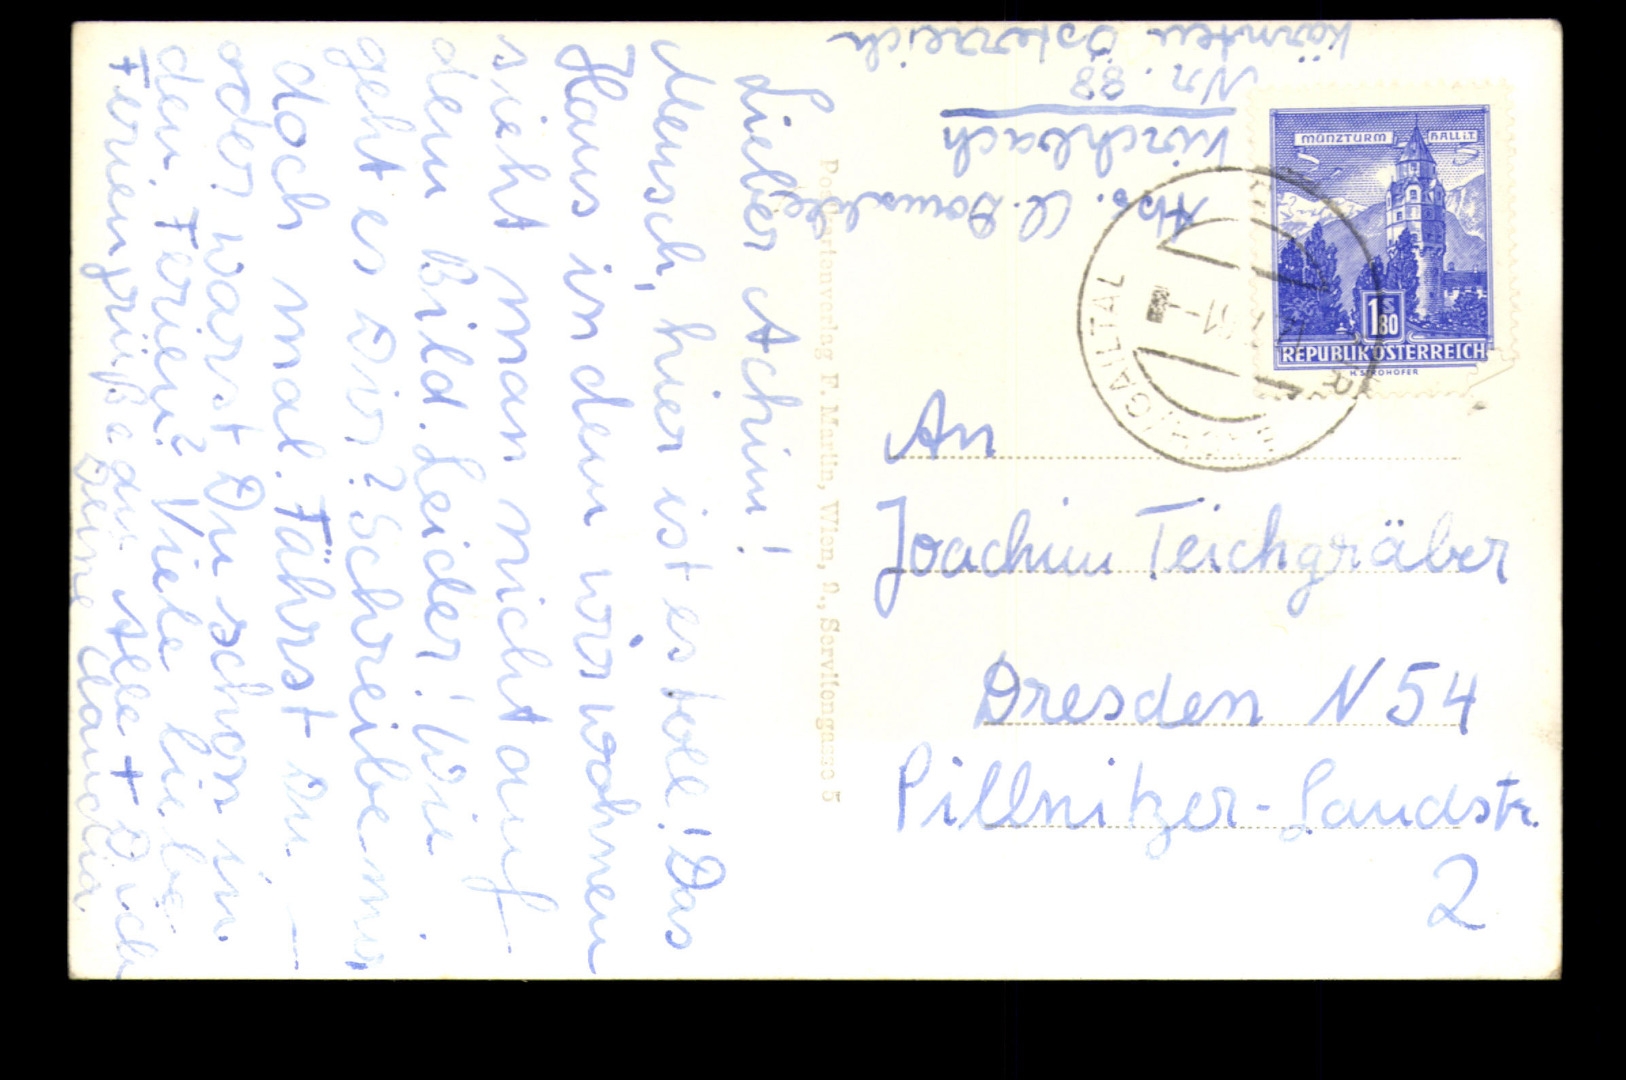 Lieber Achim!
Mensch, hier ist es toll! Das
Haus in dem wir wohnen
sieht man nicht auf
dem Bild. Leider! Wie
geht es Dir? Schreibe mir
doch mal. Fährst Du -
oder warst Du schon in
den Ferien? Viele liebe
Feriengrüße an Alle + Dich
Deine Claudia
Postkartenverlag F. Martin, Wien, 9., Servitengasse 5
Abs. C.
Kirchbach
Nr. 88
Kärnten Österreich
MÜNZTURM HALL i.T.
1 S 80
REPUBLIK ÖSTERREICH
H. STROHOFER
GAILTAL
An
Joachim Teichgräber
Dresden N 54
Pillnitzer-Landstr.
2